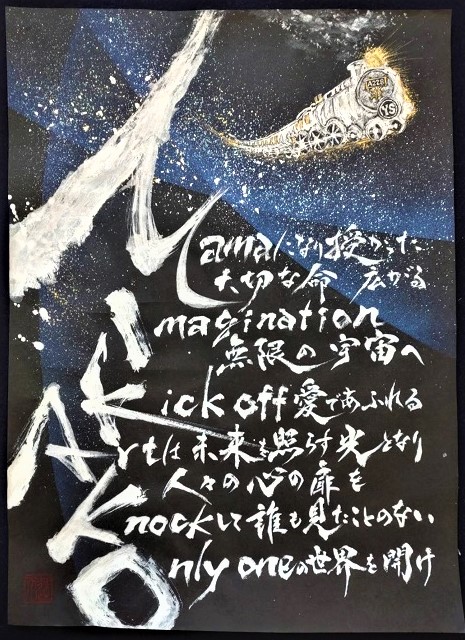 YS
Mamaになり授かった
大切な命 広がる
Imagination
無限の宇宙へ
Kick off 愛であふれる
Artは未来を照らす光となり
人々の心の扉を
Knockして誰も見たことのない
Only oneの世界を開け